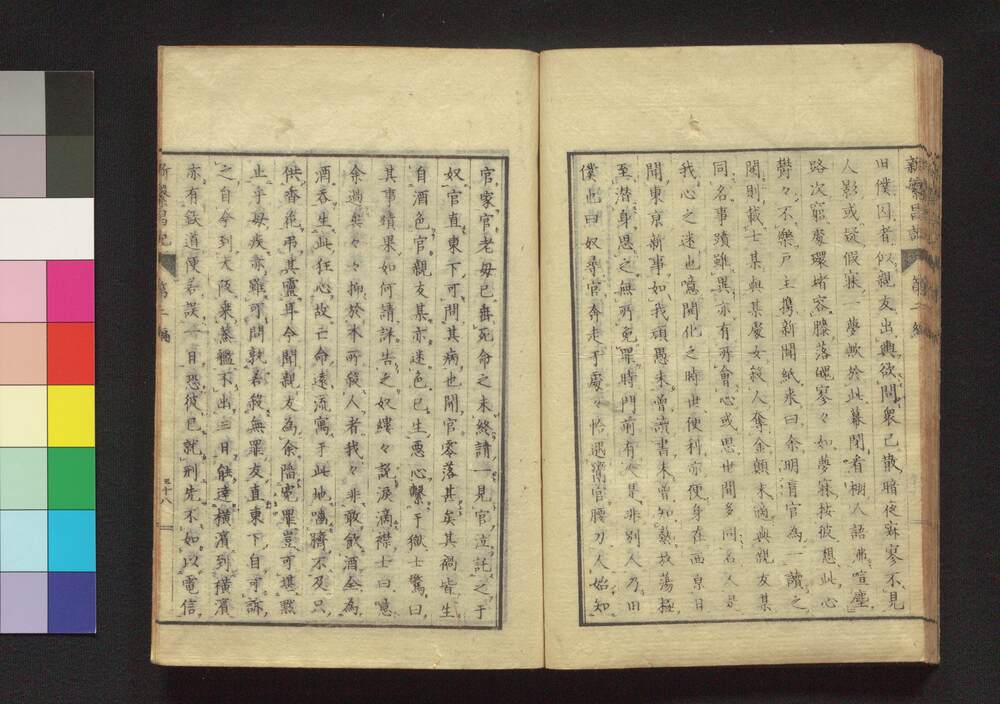 新繁昌記 第二編
旧僕因者似親友出輿欲問衆已散暗夜寂寥不見
人影或疑假寐一夢歟於此幕開看棚人語沸喧塵
路次窮處環堵容膝落魄寥々如夢寐按彼想此心
欝々不樂戸主携新聞紙来曰余明盲官為一讀之
聞則載士某與某處女殺人奪金顛末簡與親友某
同名事蹟雖異亦有所會心或思世間多同名人是
我心之迷也意開化之時世便利亦便身在西京日
聞東京新事如我頑愚未曾讀書未曾知熱放蕩極
至潜身思之無所免罪時門前有人聲非別人乃旧
僕也曰奴尋官奔走于處々恰遇濱官腰刀人始知
官家官老母已垂死命之未終請一見官泣託之于
奴官直東下可問其病也聞官零落甚矣其禍皆生
自酒色官親友某亦迷色已生悪心繫于獄士驚曰
其事蹟果如何請詳告之奴縷々説涙滴襟士曰噫
余過矣々々抑於木所殺人者我々非敢飲酒全為
酒呑生此狂心故亡命遠流寓于此地噬臍不及只
供香花弔其靈耳今聞親友為余陥寃罪豈可堪黙
止乎母疾亦雖可問孰若殺無罪友直東下自可訴
之自今到大阪乗蒸艦不出三日能達横濱到横濱
亦有鉄道便若誤一日恐彼已就刑先不如以電信
新繁昌記 第二編 三十八